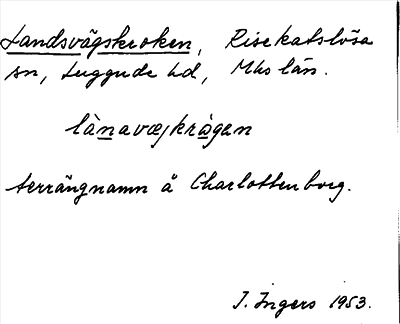 Landsvägskroken, Risekatslösa
sn, Luggude hd, Mhs län.
lànavæjkrågen
terrängnamn å Charlottenborg.
I. Ingers 1953.